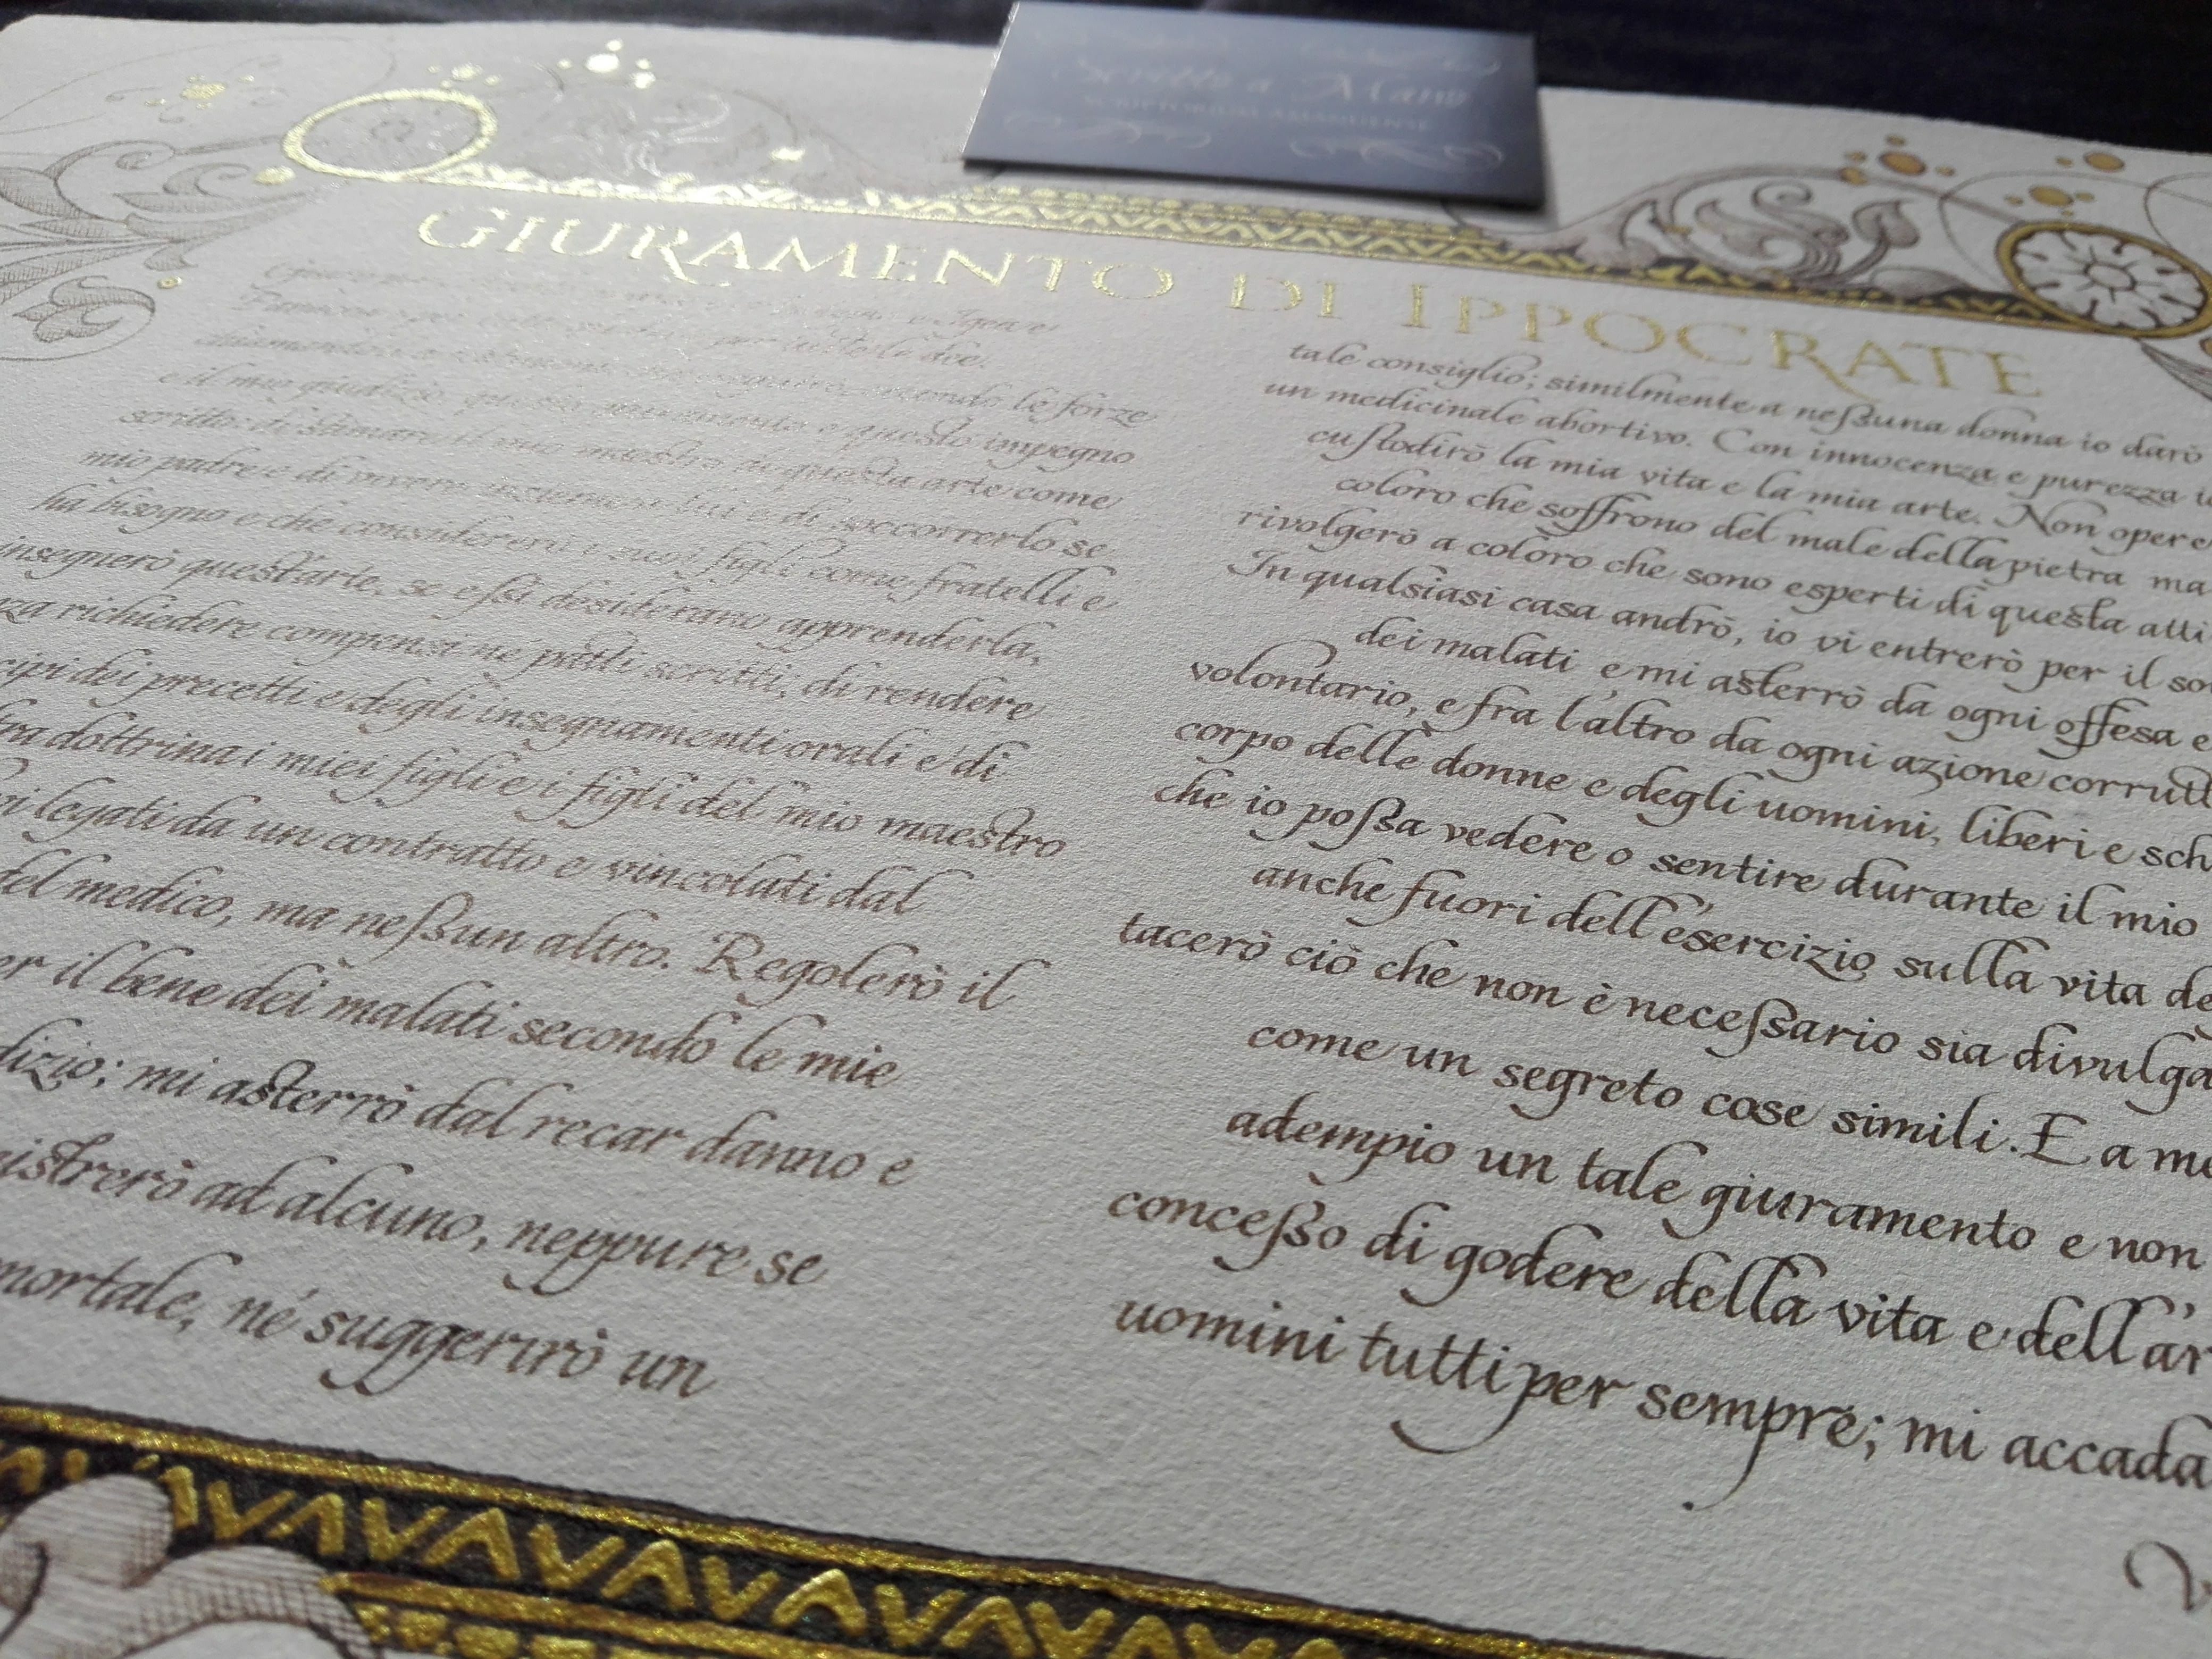 Scritto a Mano
GIURAMENTO DI IPPOCRATE
per
le forze
e il mio giudizio, questo giuramento e questo impegno
scritto: di stimare il mio maestro di questa arte come
mio padre e di vivere insieme a lui e di soccorrerlo se
ha bisogno e che considererò i suoi figli come fratelli e
insegnerò quest'arte, se essi desiderano apprenderla,
richiedere compensi né patti scritti, di rendere
dei precetti e degli insegnamenti orali e di
dottrina i miei figli e i figli del mio maestro
legati da un contratto e vincolati dal
del medico, ma nessun altro. Regolerò il
il bene dei malati secondo le mie
mi asterrò dal recar danno e
ad alcuno, neppure se
mortale, né suggerirò un
tale consiglio; similmente a nessuna donna io darò
un medicinale abortivo. Con innocenza e purezza
custodirò la mia vita e la mia arte. Non opere
coloro che soffrono del male della pietra ma
rivolgerò a coloro che sono esperti di questa atti
In qualsiasi casa andrò, io vi entrerò per il
dei malati e mi asterrò da ogni offesa e
volontario, e fra l'altro da ogni azione corrutt
corpo delle donne e degli uomini, liberi e sch
che io possa vedere o sentire durante il mio
anche fuori dell'esercizio sulla vita de
tacerò ciò che non è necessario sia divulga
come un segreto cose simili. E a me
adempio un tale giuramento e non
concesso di godere della vita e dell'ar
uomini tutti per sempre; mi accada